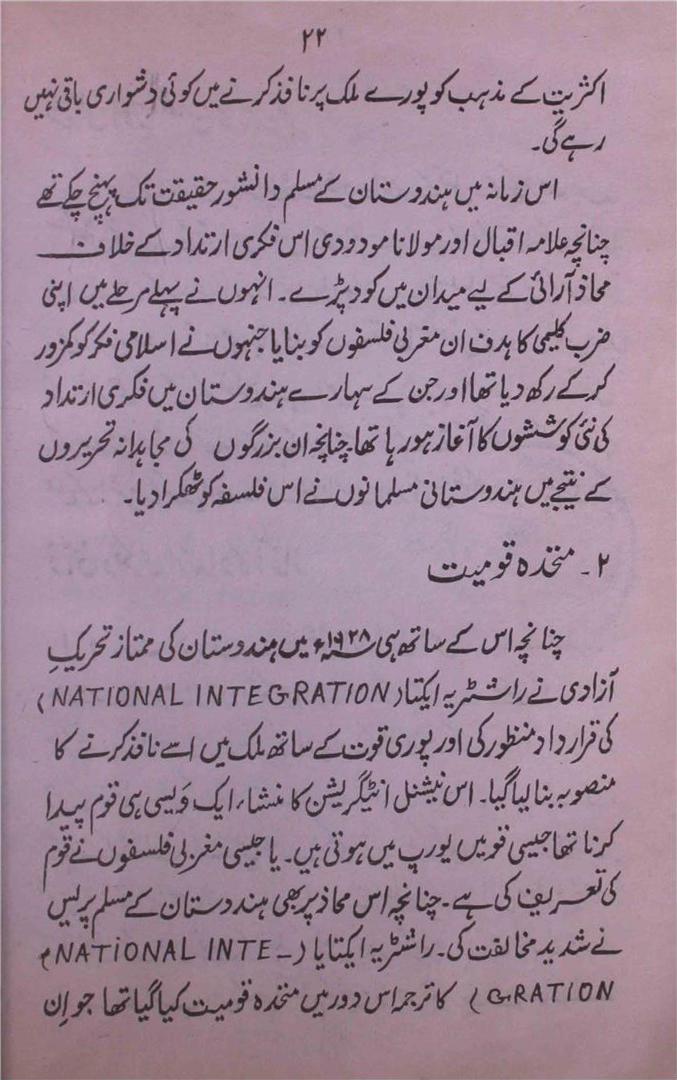 ۲۲
اکثریت کے مذہب کو پورے ملک پر نافذ کرنے میں کوئی دشواری باقی نہیں
رہے گی۔
اس زمانہ میں ہندوستان کے مسلم دانشور حقیقت تک پہنچ چکے تھے
چنانچہ علامہ اقبال اور مولانا مودودی اس فکری ارتداد کے خلاف
محاذ آرائی کے لیے میدان میں کود پڑے۔ انہوں نے پہلے مرحلے میں اپنی
ضرب کلیمی کا ہدف ان مغربی فلسفوں کو بنایا جنہوں نے اسلامی فکر کو کمزور
کر کے رکھ دیا تھا اور جن کے سہارے ہندوستان میں فکری ارتداد
کی نئی کوششوں کا آغاز ہو رہا تھا چنانچہ ان بزرگوں کی مجاہدانہ تحریروں
کے نتیجے میں ہندوستانی مسلمانوں نے اس فلسفہ کو ٹھکرا دیا۔
۲۔ متحدہ قومیت
چنانچہ اس کے ساتھ ہی ۱۹۲۸ء میں ہندوستان کی ممتاز تحریکِ
آزادی نے راشٹریہ ایکتا (NATIONAL INTEGRATION)
کی قرار داد منظور کی اور پوری قوت کے ساتھ ملک میں اسے نافذ کرنے کا
منصوبہ بنا لیا گیا۔ اس نیشنل انٹیگریشن کا منشاء ایک وَیسی ہی قوم پیدا
کرنا تھا جیسی قومیں یورپ میں ہوتی ہیں۔ یا جیسی مغربی فلسفوں نے قوم
کی تعریف کی ہے۔ چنانچہ اس محاذ پر بھی ہندوستان کے مسلم پریس
نے شدید مخالفت کی۔ راشٹریہ ایکتا یا (NATIONAL INTE-
GRATION) کا ترجمہ اس دور میں متحدہ قومیت کیا گیا تھا جو اِن